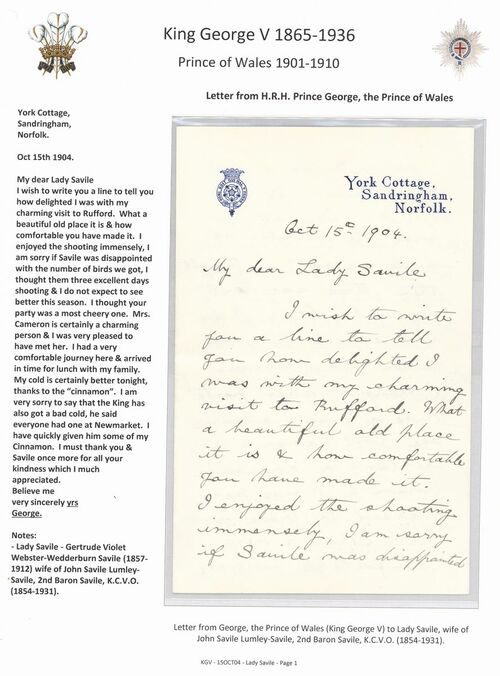 King George V 1865-1936
Prince of Wales 1901-1910
Letter from H.R.H. Prince George, the Prince of Wales
York Cottage,
Sandringham,
Norfolk.
Oct 15th 1904.
My dear Lady Savile
I wish to write you a line to tell you
how delighted I was with my
charming visit to Rufford. What a
beautiful old place it is & how
comfortable you have made it. I
enjoyed the shooting immensely, I
am sorry if Savile was disappointed
with the number of birds we got, I
thought them three excellent days
shooting & I do not expect to see
better this season. I thought your
party was a most cheery one. Mrs.
Cameron is certainly a charming
person & I was very pleased to
have met her. I had a very
comfortable journey here & arrived
in time for lunch with my family.
My cold is certainly better tonight,
thanks to the “cinnamon”. I am
very sorry to say that the King has
also got a bad cold, he said
everyone had one at Newmarket. I
have quickly given him some of my
Cinnamon. I must thank you &
Savile once more for all your
kindness which I much
appreciated.
Believe me
very sincerely yrs
George.
Notes:
- Lady Savile - Gertrude Violet
Webster-Wedderburn Savile (1857-
1912) wife of John Savile Lumley-
Savile, 2nd Baron Savile, K.C.V.O.
(1854-1931).
York Cottage,
Sandringham,
Norfolk.
Oct 15th 1904.
My dear Lady Savile
I wish to write
you a line to tell
you how delighted I
was with my charming
visit to Rufford. What
a beautiful old place
it is & how comfortable
you have made it.
I enjoyed the shooting
immensely, I am sorry
if Savile was disappointed
Letter from George, the Prince of Wales (King George V) to Lady Savile, wife of
John Savile Lumley-Savile, 2nd Baron Savile, K.C.V.O. (1854-1931).
KGV - 15OCT04 - Lady Savile - Page 1